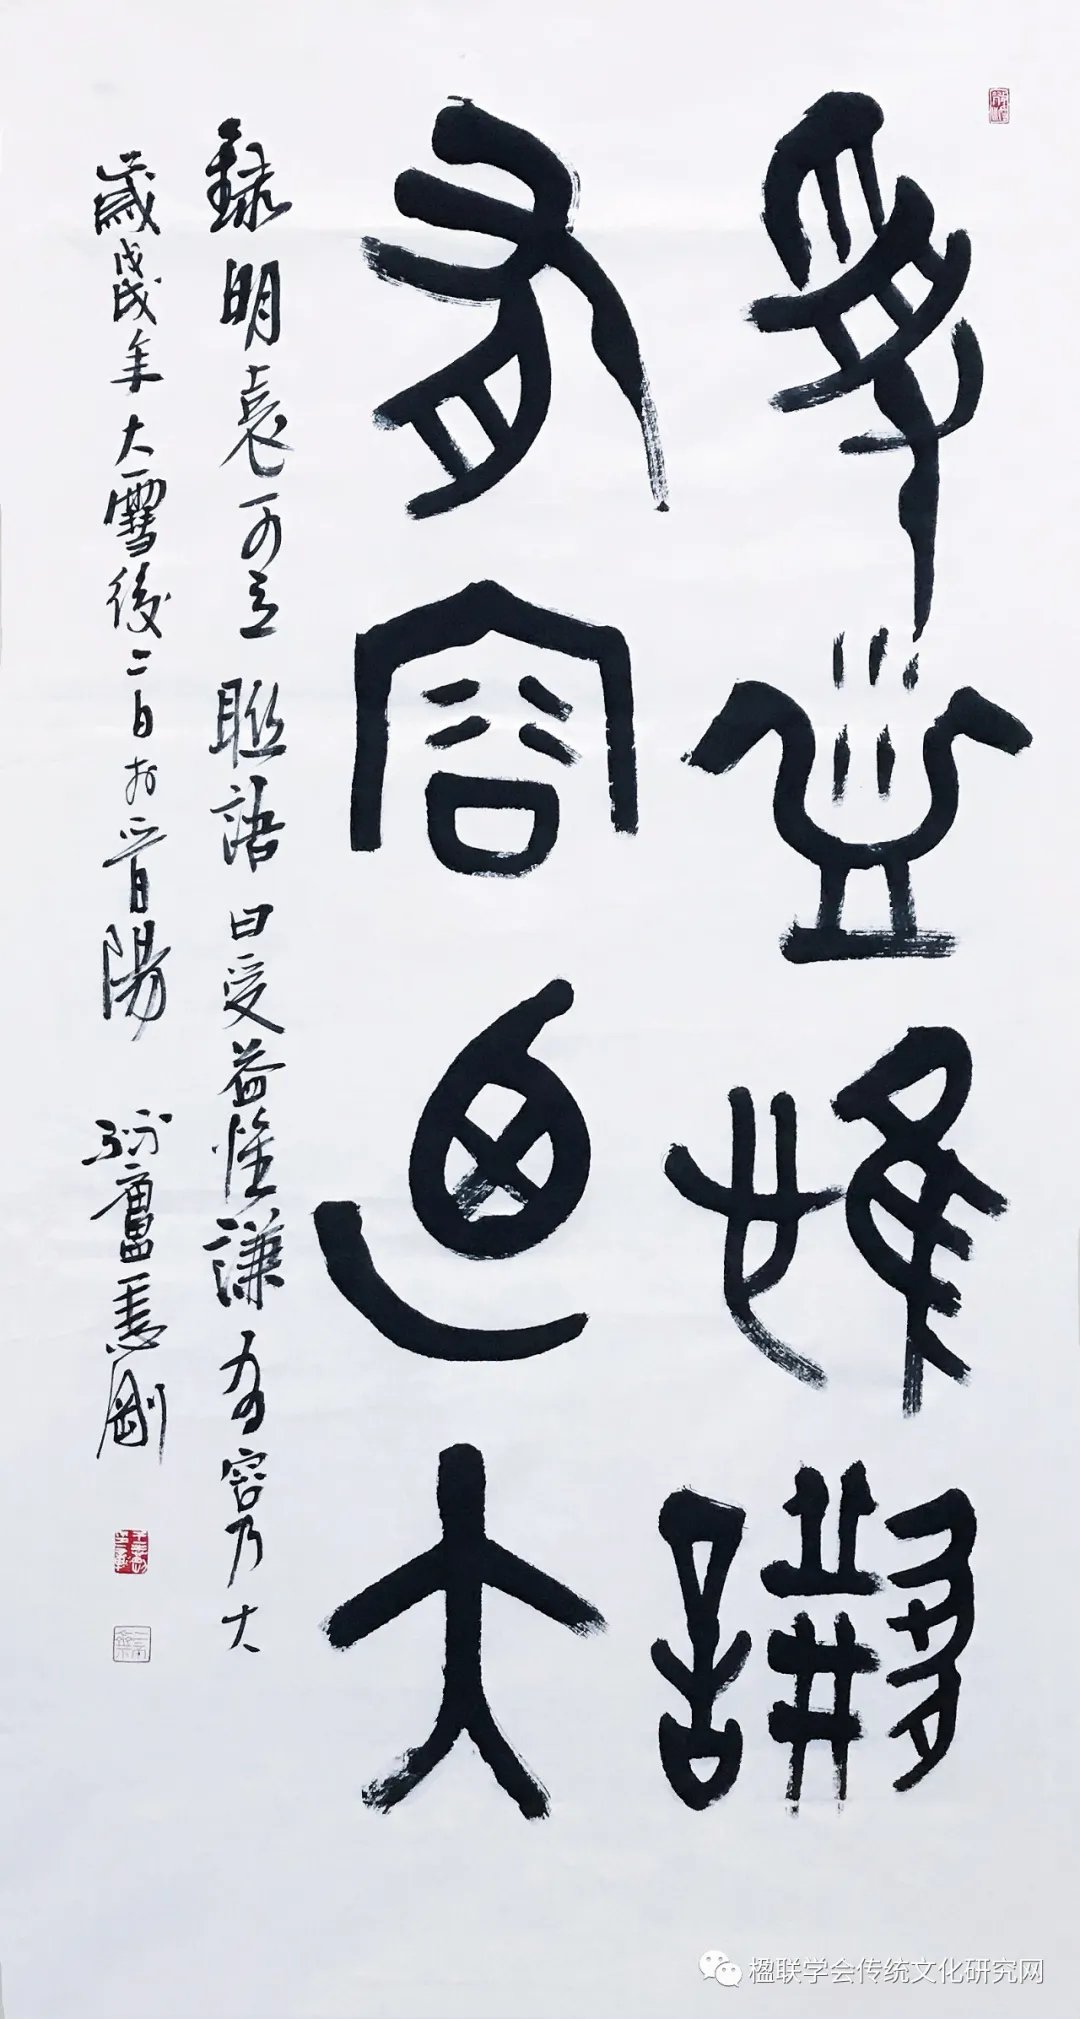 受益惟謙
有容迺大
録明袁可立聯語曰受益惟謙有容乃大
歲戊戌年大雪後二日於晉陽 剛
楹联学会传统文化研究网